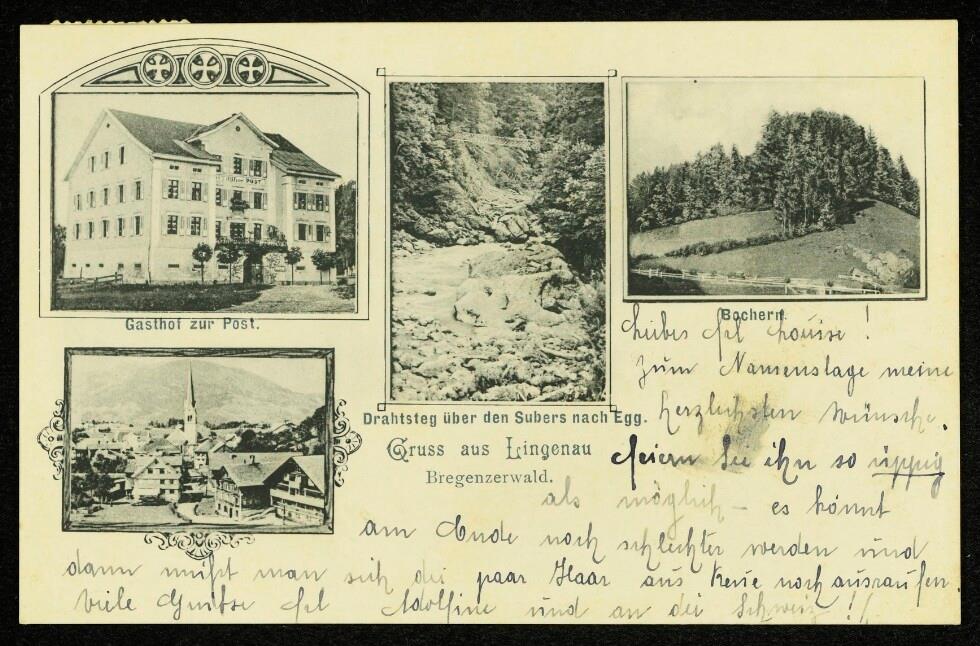 GASTHOF POST
Gasthof zur Post.
Drahtsteg über den Subers nach Egg.
Bochern.
Gruss aus Lingenau
Bregenzerwald.
Liebes Frl Louise!
Zum Namenstage meine
herzlichsten Wünsche.
Feiern Sie ihn so üppig
als möglich – es könnt
am Ende noch schlechter werden und
dann müßt man sich die paar Haar aus Reue noch ausraufen
Viele Grüße Frl Adolfine und an die Schweiz!